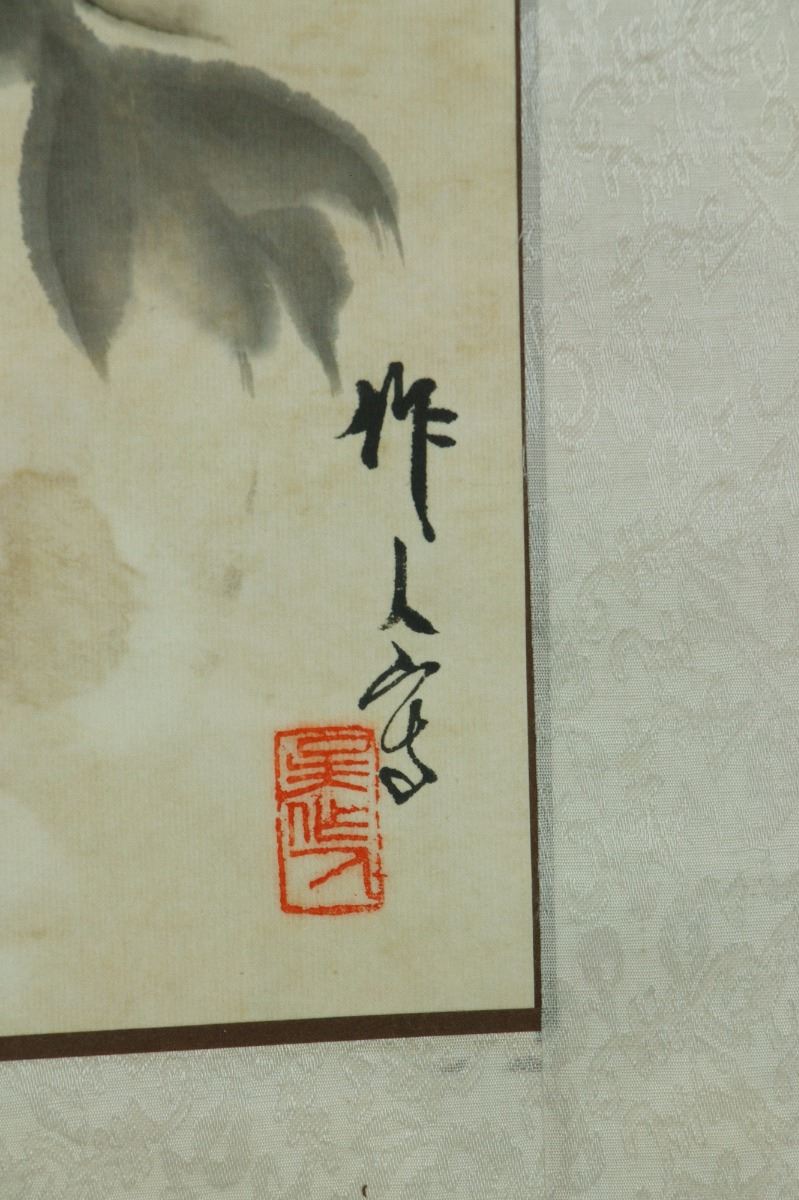 作人寫
吳作人